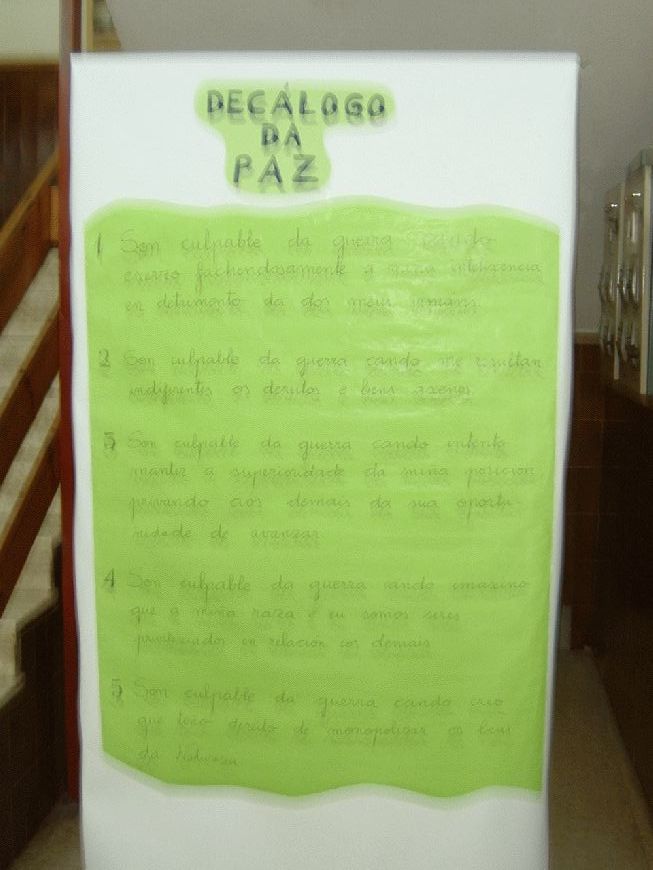 DECÁLOGO
DA
PAZ
1 Son culpable da guerra cando
exerzo fachendosamente a miña intelixencia
en detrimento da dos meus irmáns.
2 Son culpable da guerra cando me resultan
indiferentes os dereitos e bens axenos.
3 Son culpable da guerra cando intento
manter a superioridade da miña posición
privando aos demais da súa oportu-
nidade de avanzar
4 Son culpable da guerra cando imaxino
que a miña raza e eu somos seres
privilexiados en relación cos demais
5 Son culpable da guerra cando creo
que teño dereito de monopolizar os bens
da Natureza